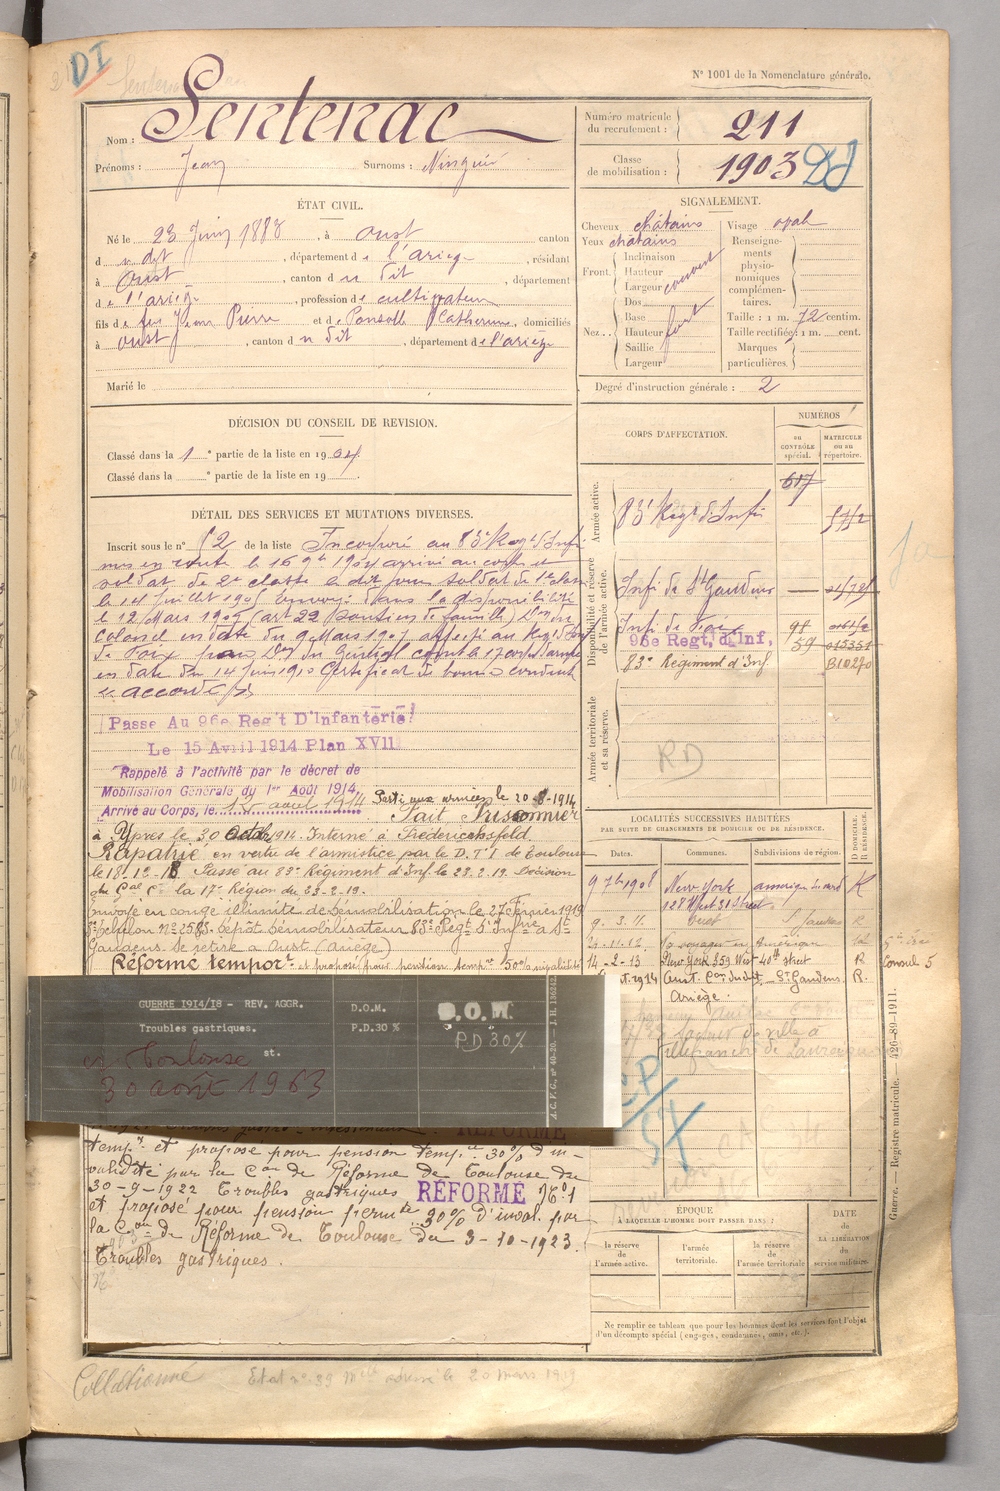 DI
N° 1001 de la Nomenclature générale.
Nom : Sentenac
Prénoms : Jean Surnoms :
Numéro matricule du recrutement : 211
Classe de mobilisation : 1903
ÉTAT CIVIL.
Né le 23 Juin 1883, à Oust canton
d u dit, département de l'ariège, résidant
à Oust, canton d u dit, département
de l'ariège, profession de cultivateur
fils de feu Jean Pierre et de Ponsolle Catherine, domiciliés
à oust, canton d u dit, département de l'ariège
Marié le
SIGNALEMENT.
Cheveux châtains
Yeux châtains
Front. Inclinaison
Hauteur
Largeur
Nez. Dos
Base
Hauteur
Saillie
Largeur
fort
Visage oval
Renseignements physionomiques complémentaires.
Taille : 1 m. 72 centim.
Taille rectifiée : 1 m. cent.
Marques particulières.
Degré d'instruction générale : 2
DÉCISION DU CONSEIL DE REVISION.
Classé dans la 1 e partie de la liste en 1904
Classé dans la e partie de la liste en 19
DÉTAIL DES SERVICES ET MUTATIONS DIVERSES.
Inscrit sous le n° 52 de la liste Incorporé au 83e Régt d'Infie
mis en route le 16 9bre 1904 arrivé au corps et
soldat de 2e classe le dit jour soldat de 1e classe
le 14 juillet 1905 Envoyé dans la disponibilité
le 12 Mars 1907 (art 22 soutien de famille) Don du
Colonel en date du 9 Mars 1907 affecté au Régt d'Inf
de Foix par Don du Général Comt le 17e corps d'armée
en date du 14 Juin 1910 Certificat de bonne conduite
"accordé"
Passe Au 96e Reg't D'Infanterie
Le 15 Avril 1914 Plan XVII
Rappelé à l'activité par le décret de
Mobilisation Générale du 1er Août 1914,
Arrivé au Corps, le 12 août 1914 Parti aux armées le 20-8-1914
Fait Prisonnier
à Ypres le 30 Octobre 1914. Interné à Frederichsfeld.
Rapatrié en vertu de l'armistice par le D.T.I de Toulouse
le 18-12-18 Passé au 83e Régiment d'Inf. le 23.2.19. Décision
du Gal Ct la 17e Région du 23-2-19.
Envoyé en congé illimité de démobilisation le 27 Février 1919
Echelon N° 2583. Dépôt démobilisateur 83e Regt d'Infrie à St
Gaudens. Se retire à Oust (Ariège)
Réformé temport et proposé pour pension tempre 50%
GUERRE 1914/18 - REV. AGGR.
Troubles gastriques.
D.O.M.
P.D.30 %
D.O.M.
PD 30%
Toulouse
st.
30 août 1963
A.C.F.C., n° 40-20. — J. H. 136242
RÉFORMÉ
tempre et proposé pour pension tempre 30% d'in-
validité par la Con de Réforme de Toulouse du
30-9-1922 Troubles gastriques RÉFORMÉ N° 1
et proposé pour pension permte 30% d'inval. par
la Con de Réforme de Toulouse du 3-10-1923.
Troubles gastriques.
CORPS D'AFFECTATION.
NUMÉROS
au CONTRÔLE spécial.
MATRICULE ou au répertoire.
Armée active.
83e Régt d'Infie
617
Disponibilité et réserve de l'armée active.
Infie de St Gaudens
Infie de Foix
96e Regt, d'Inf,
59 015331
83e Régiment d'Inf. B10270
Armée territoriale et sa réserve.
RD
LOCALITÉS SUCCESSIVES HABITÉES
PAR SUITE DE CHANGEMENTS DE DOMICILE OU DE RÉSIDENCE.
Dates. Communes. Subdivisions de région. D DOMICILE. R RÉSIDENCE.
9 7bre 1908 New York R
128 West 31 Street
9.3.11. Oust St Gaudens R
21-11-12 Se voyager en Amérique
14-2-13 New York 359 West 40th street R Consul 5
Oust. Con du dit St Gaudens R.
Ariège.
ÉPOQUE
À LAQUELLE L'HOMME DOIT PASSER DANS :
la réserve de l'armée active.
l'armée territoriale.
la réserve de l'armée territoriale
DATE de LA LIBÉRATION du service militaire.
Ne remplir ce tableau que pour les hommes dont les services font l'objet
d'un décompte spécial (engagés, condamnés, omis, etc.).
Guerre. — Registre matricule. — 426-89-1911.
Collationné